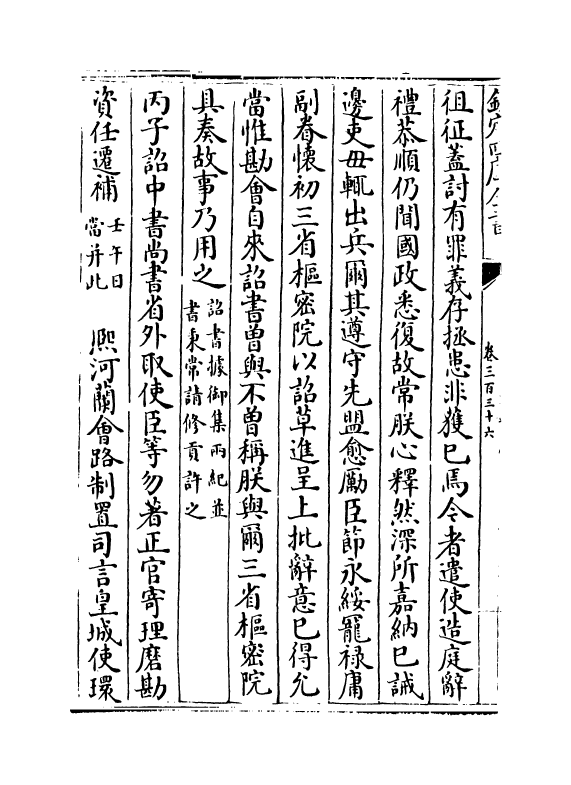 欽定四庫全書
卷三百三十六
徂征蓋討有罪義存拯患非獲已焉今者遣使造庭辭
禮恭順仍聞國政悉復故常朕心釋然深所嘉納已誡
邊吏毋輒出兵爾其遵守先盟愈勵臣節永綏寵祿庸
副眷懷初三省樞密院以詔草進呈上批辭意已得允
當惟勘會自來詔書曽與不曽稱朕與爾三省樞密院
具奏故事乃用之
詔書據御集兩紀並
書秉常請修貢許之
丙子詔中書尚書省外取使臣等勿著正官寄理磨勘
資任遷補
壬午日
當并此
熈河蘭會路制置司言皇城使環